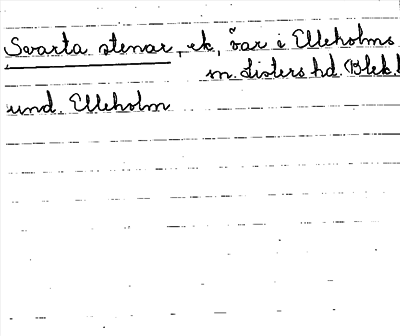 Svarta stenar, ek, var i Elleholms
m. Listers hd. (Blek.)
und. Elleholm